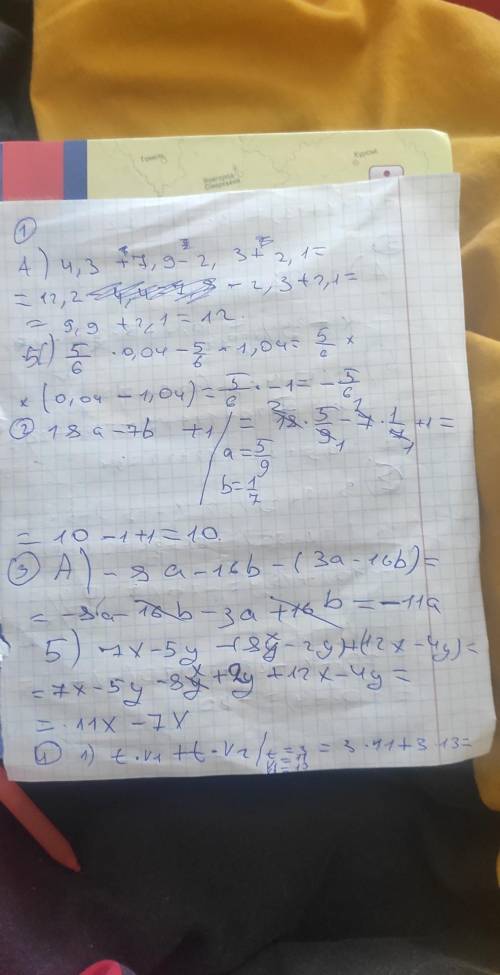 Гомель
Новгород
Сіверський
Курськ
1
А) 4,3 + 7,9 - 2,3 + 2,1 =
= 12,2 - 2,3 + 2,1 =
= 9,9 + 2,1 = 12.
Б) 5/6 · 0,04 - 5/6 · 1,04 = 5/6 ×
× (0,04 - 1,04) = 5/6 · -1 = -5/6
2 18a - 7b + 1 / = 18 · 5/9 - 7 · 1/7 + 1 =
a = 5/9
b = 1/7
= 10 - 1 + 1 = 10.
3 А) - 8a - 16b - (3a - 16b) =
= -8a - 16b - 3a + 16b = -11a
Б) 7x - 5y - (8x - 2y) + (12x - 4y) =
= 7x - 5y - 8x + 2y + 12x - 4y =
= 11x - 7y
4 1) t · v1 + t · v2 / t = 3 = 3 · 11 + 3 · 13 =